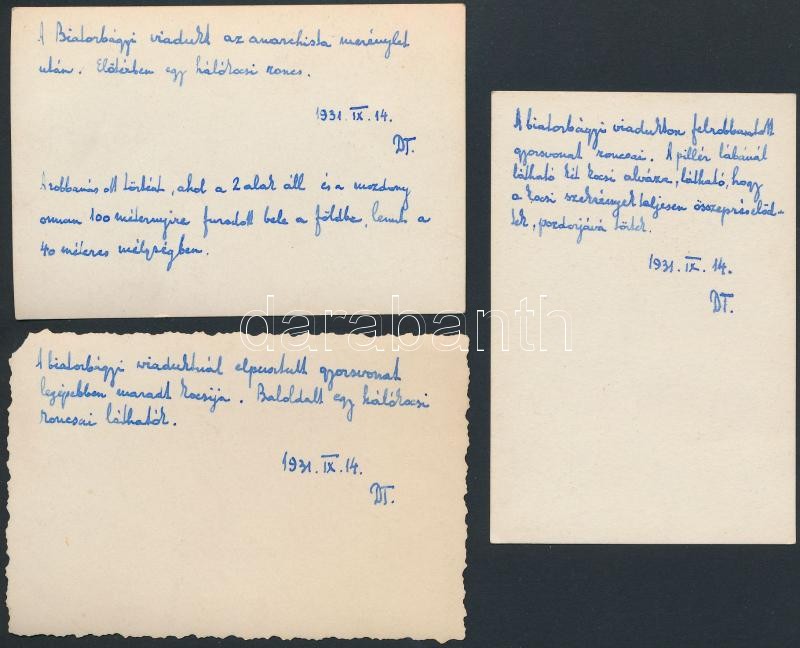 A Biatorbágyi viadukt az anarchista merénylet
után. Előtérben egy hálókocsi roncs.
1931. IX. 14.
DT.
A robbanás ott történt, ahol a 2 alak áll és a mozdony
onnan 100 méternyire furódott bele a földbe, lent a
40 méteres mélységben.
A biatorbágyi viadukton felrobbantott
gyorsvonat roncsai. A pillér lábánál
látható két kocsi alváza, látható, hogy
a kocsi szekrények teljesen összepréselőd-
tek, pozdorjává törtek.
1931. IX. 14.
DT.
A biatorbágyi viaduktnál elpusztult gyorsvonat
legépebben maradt kocsija. Baloldalt egy hálókocsi
roncsai láthatók.
1931. IX. 14.
DT.
darabanth